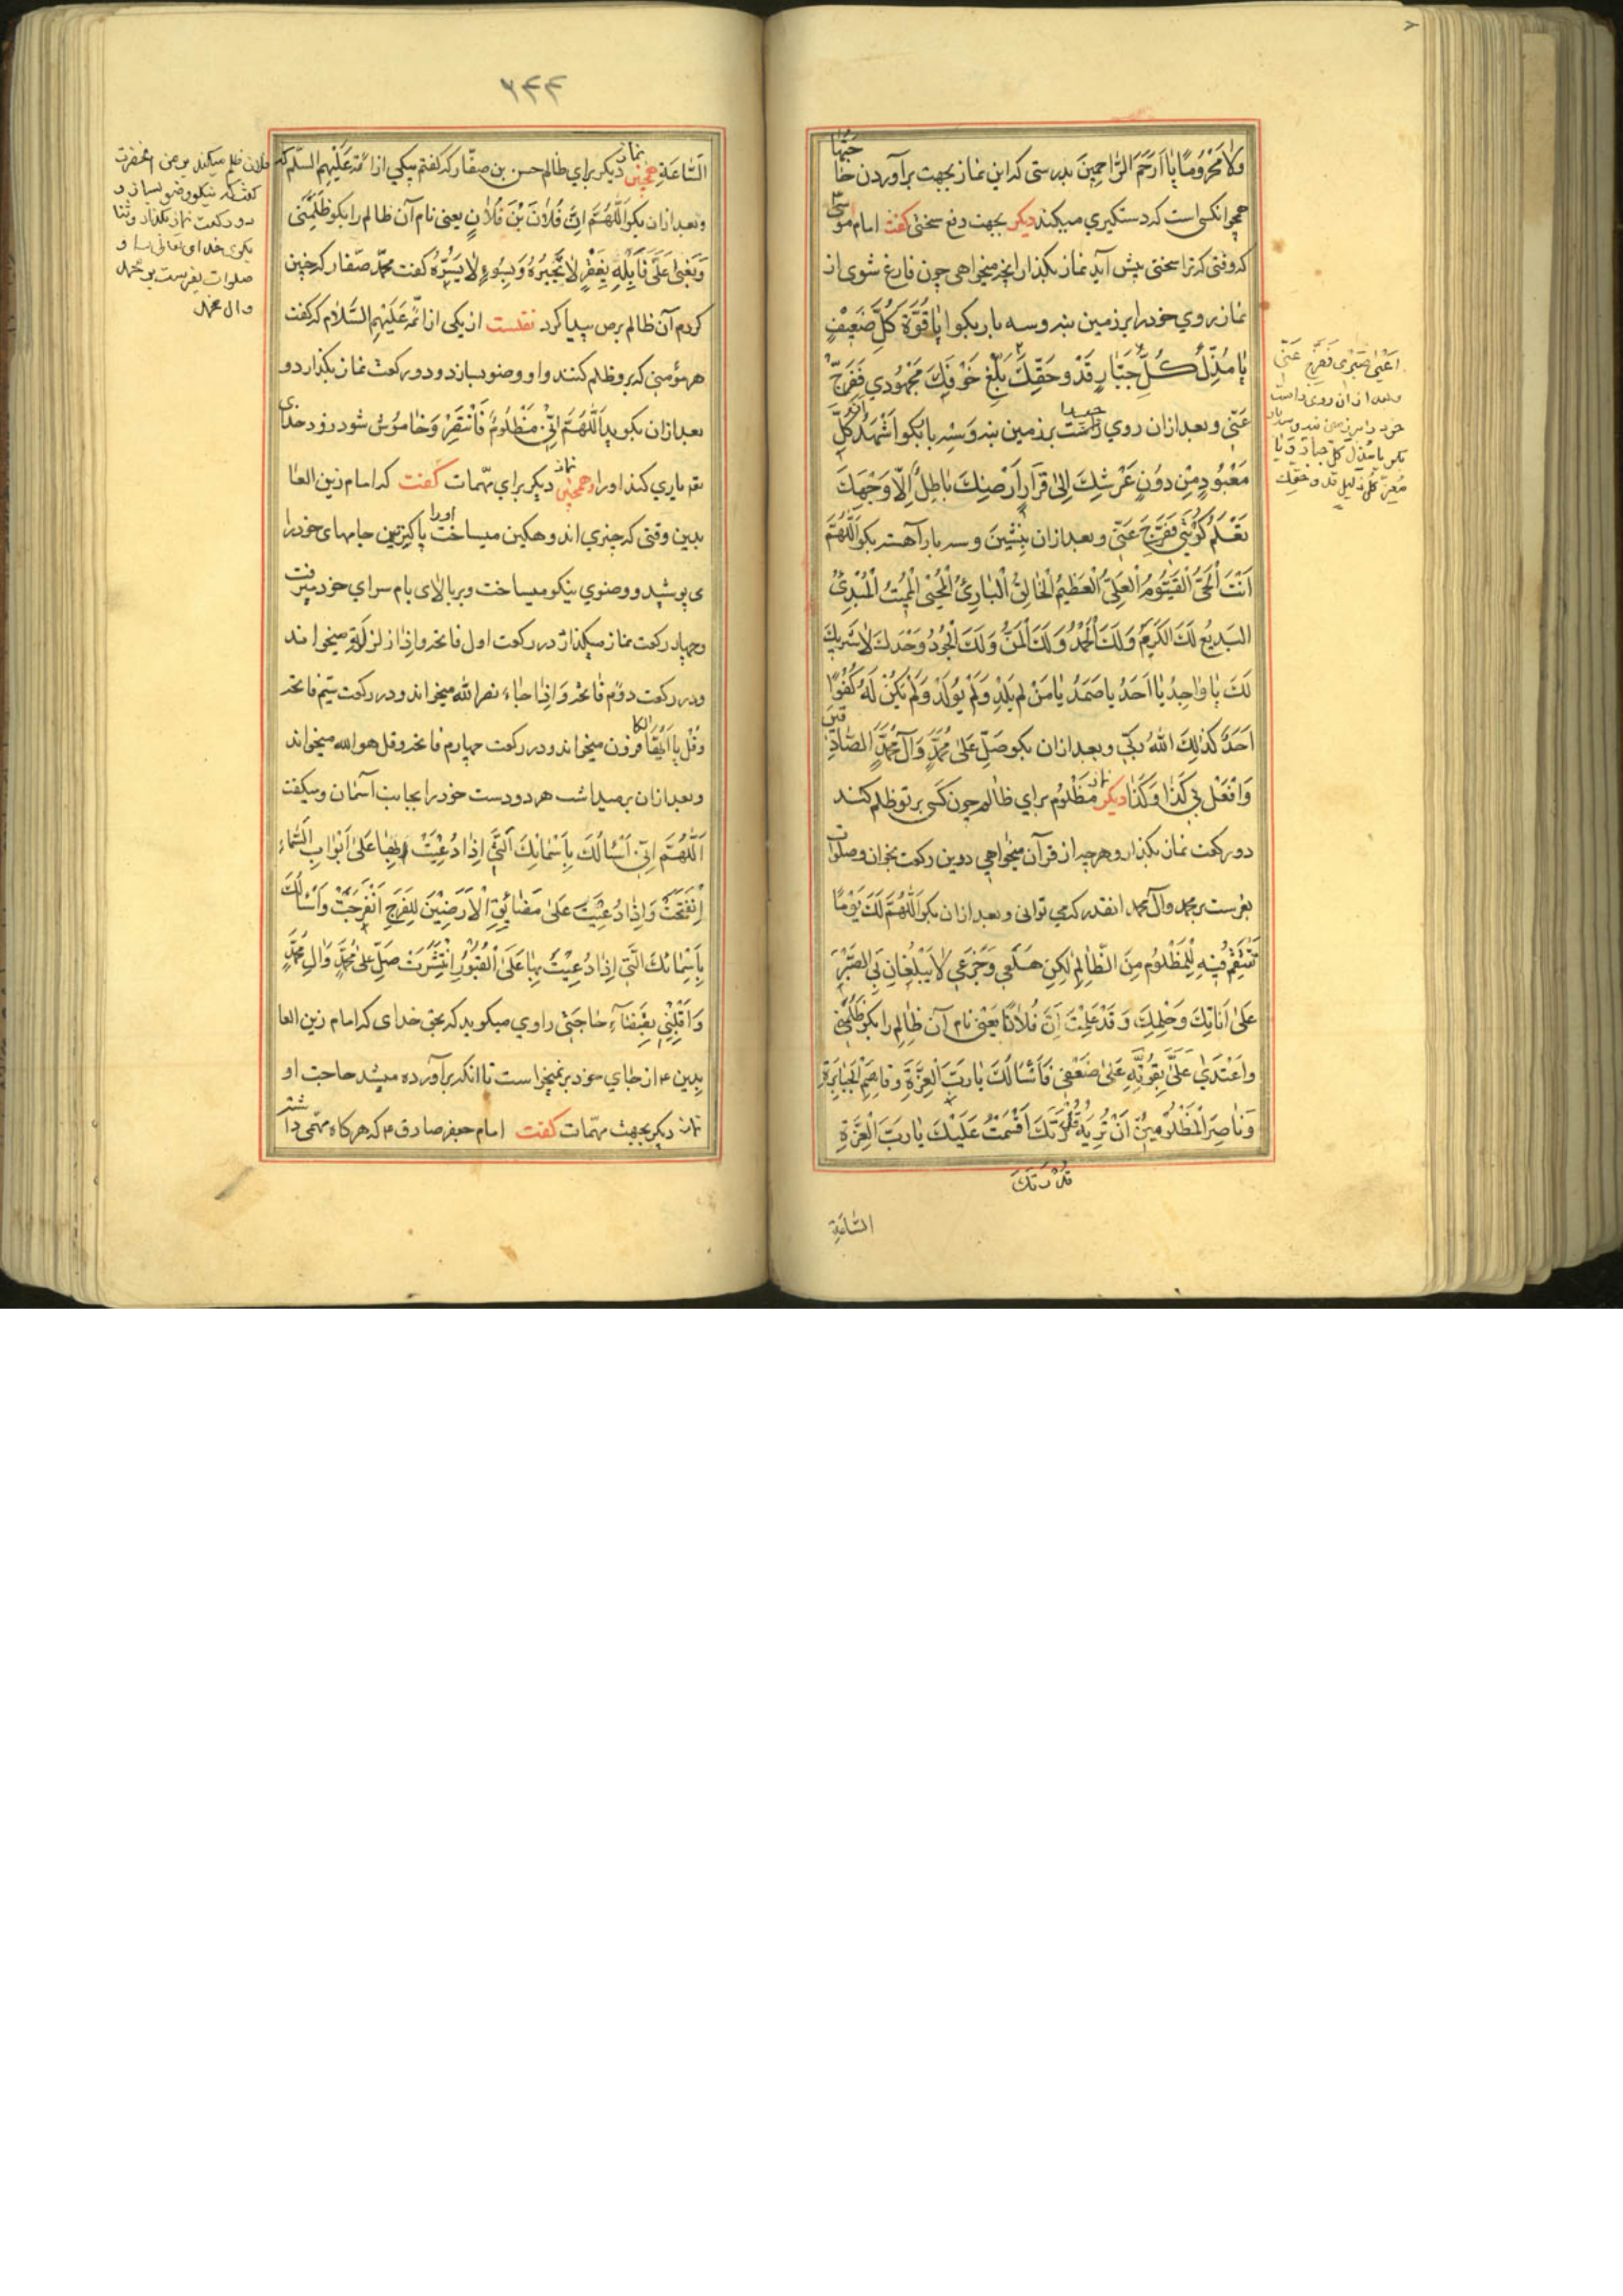 وَلَا مَحْرُومًا يَا أَرْحَمَ الرَّاحِمِينَ بدرستی که این نماز بجهت برآوردن حاجتها
همچو انکسی است که دستکیری میکند دیکر بجهت دفع سختی کفت امام موسی
که وقتی که ترا سختی پیش آید نماز بکذار انچه میخواهی چون فارغ شوی از
نماز روی خود را بر زمین بنه و سه بار بکو یَا قُوَّةَ كُلِّ ضَعِيفٍ
يَا مُذِلَّ كُلِّ جَبَّارٍ قَدْ وَحَقِّكَ بَلَغَ خَوْفُكَ مَجْهُودِي فَفَرِّجْ
عَنِّي و بعد از ان روی راست بر زمین بنه و سه بار بکو أَشْهَدُ أَنَّ كُلَّ
مَعْبُودٍ مِنْ دُونِ عَرْشِكَ إِلَى قَرَارِ أَرْضِكَ بَاطِلٌ إِلَّا وَجْهَكَ
تَعْلَمُ كُرْبَتِي فَفَرِّجْ عَنِّي و بعد از ان بنشین و سه بار آهسته بکو اَللّٰهُمَّ
أَنْتَ الْحَيُّ الْقَيُّومُ الْعَلِيُّ الْعَظِيمُ الْخَالِقُ الْبَارِئُ الْمُحْيِي الْمُمِيتُ الْمُبْدِئُ
الْبَدِيعُ لَكَ الْكَرَمُ وَلَكَ الْحَمْدُ وَلَكَ الْمَنُّ وَلَكَ الْجُودُ وَحْدَكَ لَا شَرِيكَ
لَكَ يَا وَاحِدُ يَا أَحَدُ يَا صَمَدُ يَا مَنْ لَمْ يَلِدْ وَلَمْ يُولَدْ وَلَمْ يَكُنْ لَهُ كُفُوًا
أَحَدٌ كَذٰلِكَ اللّٰهُ رَبِّي و بعد از ان بکو صَلِّ عَلَى مُحَمَّدٍ وَآلِ مُحَمَّدٍ الصَّادِقِينَ
وَافْعَلْ بِي كَذَا وَكَذَا نماز دیکر مظلوم برای ظالم چون کسی بر تو ظلم کند
دو رکعت نماز بکذار و هرچه از قرآن میخواهی دوین رکعت بخوان و صلوات
بفرست بر محمد وآل محمد انقدر که می توانی و بعد از ان بکو اَللّٰهُمَّ إِنَّ لَكَ يَوْمًا
تَنْتَقِمُ فِيهِ لِلْمَظْلُومِ مِنَ الظَّالِمِ لٰكِنْ هَلَعِي وَجَزَعِي لَا يَبْلُغَانِ بِي الصَّبْرَ
عَلَى أَنَاتِكَ وَحِلْمِكَ وَقَدْ عَلِمْتَ أَنَّ فُلَانًا یعنی نام آن ظالم را بکو ظَلَمَنِي
وَاعْتَدَى عَلَيَّ بِقُوَّتِهِ عَلَى ضَعْفِي فَأَسْأَلُكَ يَا رَبَّ الْعِزَّةِ وَقَاصِمَ الْجَبَابِرَةِ
وَنَاصِرَ الْمَظْلُومِينَ أَنْ تُرِيَهُ قُدْرَتَكَ أَقْسَمْتُ عَلَيْكَ يَا رَبَّ الْعِزَّةِ
قُدْرَتَكَ
السَّاعَةِ
عَنِّي
و بعد از ان روی راست
خود را بر زمین بنه و سه بار
بکو یا مذل کل جبار و یا
معز كل ذليل قد وحقك
۶۴۴
السَّاعَةِ همچنین نماز دیکر برای ظالم حسن بن صفّار که کفتم بیکی از ائمه عَلَيْهِمُ السَّلَم که
و بعد از ان بکو اَللّٰهُمَّ إِنَّ فُلَانَ بْنَ فُلَانٍ یعنی نام آن ظالم را بکو ظَلَمَنِي
وَبَغَى عَلَيَّ فَابْلُهُ بِفَقْرٍ لَا تَجْبُرُهُ وَبِسُوءٍ لَا يَسْتُرُهُ کفت محمد صفار که چنین
کردم آن ظالم برص پیدا کرد نقلست از یکی از ائمه عَلَيْهِمُ السَّلَام که کفت
هر مؤمنی که برو ظلم کنند و او وضو بسازد و دو رکعت نماز بکذارد و
بعد از ان بکوید اَللّٰهُمَّ إِنِّي مَظْلُومٌ فَانْتَصِرْ و خاموش شود زود خدای
تعه یاری کند او را و همچنین نماز دیکر برای مهمّات کفت که امام زین العا
بدین وقتی که چیزی اندوهکین میساخت او را پاکیزه‌ترین جامهای خود را
می پوشید و وضوی نیکو میساخت و بر بالای بام سرای خود میرفت
و چهار رکعت نماز میکذارد در رکعت اول فاتحه و اِذا زلزلة میخواند
و در رکعت دوّم فاتحه وَ اِذا جاء نصر الله میخواند و در رکعت سیّم فاتحه
و قُل یا ایها الکافرون میخواند و در رکعت چهارم فاتحه و قل هو الله میخواند
و بعد از ان بر میداشت هر دو دست خود را بجانب آسمان و میکفت
اَللّٰهُمَّ إِنِّي أَسْأَلُكَ بِأَسْمَائِكَ الَّتِي إِذَا دُعِيتَ بِهَا عَلَى أَبْوَابِ السَّمَاءِ
اِنْفَتَحَتْ وَإِذَا دُعِيتَ عَلَى مَضَائِقِ الْأَرَضِينَ لِلْفَرَجِ انْفَرَجَتْ وَأَسْأَلُكَ
بِأَسْمَائِكَ الَّتِي إِذَا دُعِيتَ بِهَا عَلَى الْقُبُورِ انْتَشَرَتْ صَلِّ عَلَى مُحَمَّدٍ وَآلِ مُحَمَّدٍ
وَاقْلِبْنِي بِقَضَآءِ حَاجَتِي راوی میکوید که بحق خدای که امام زین العا
بدین ع از جای خود برنمیخواست تا انکه برآورده میشد حاجت او
نماز دیکر بجهت مهمّات کفت امام جعفر صادق ع که هر کاه مهمّی دا شته
فلان ظلم میکند بر من انحضرت
کفت که نیکو وضو بساز و
دو رکعت نماز بکذار و ثنا
بکوی خدای تعالی را و
صلوات بفرست بر محمد
وال محمد